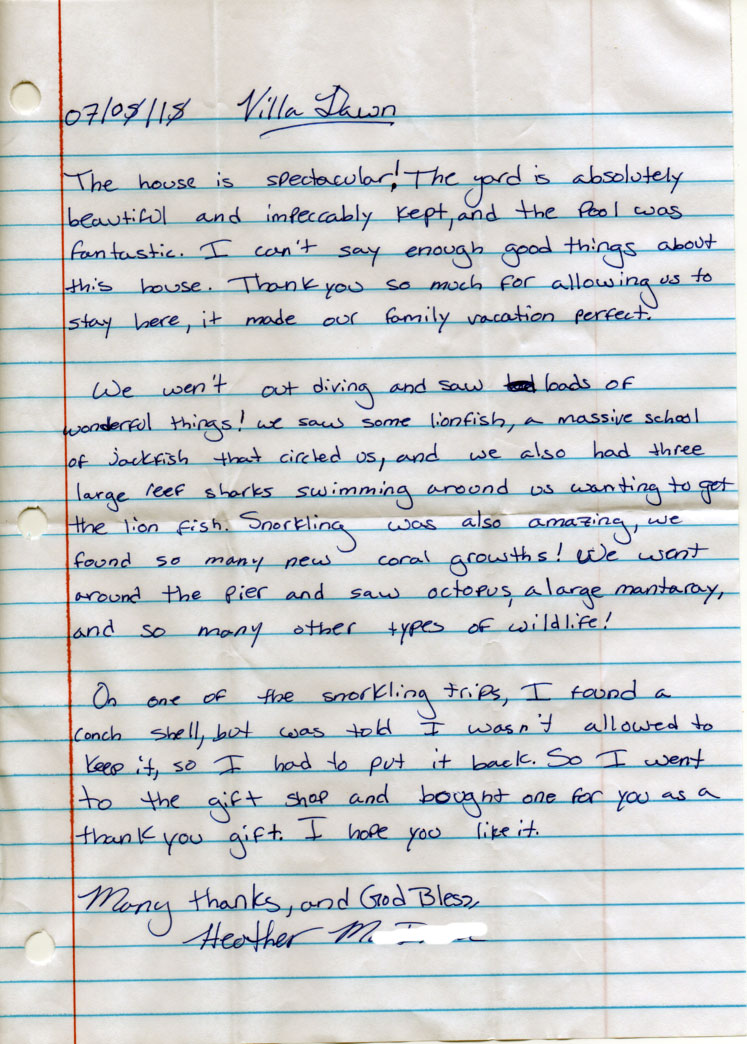 07/08/18 Villa Dawn
The house is spectacular! The yard is absolutely
beautiful and impeccably kept, and the pool was
fantastic. I can't say enough good things about
this house. Thank you so much for allowing us to
stay here, it made our family vacation perfect.
We wen't out diving and saw loads of
wonderful things! we saw some lionfish, a massive school
of jackfish that circled us, and we also had three
large reef sharks swimming around us wanting to get
the lion fish. Snorkling was also amazing, we
found so many new coral growths! We went
around the pier and saw octopus, a large mantaray,
and so many other types of wildlife!
On one of the snorkling trips, I found a
conch shell, but was told I wasn't allowed to
keep it, so I had to put it back. So I went
to the gift shop and bought one for you as a
thank you gift. I hope you like it.
Many thanks, and God Bless,
Heather M.